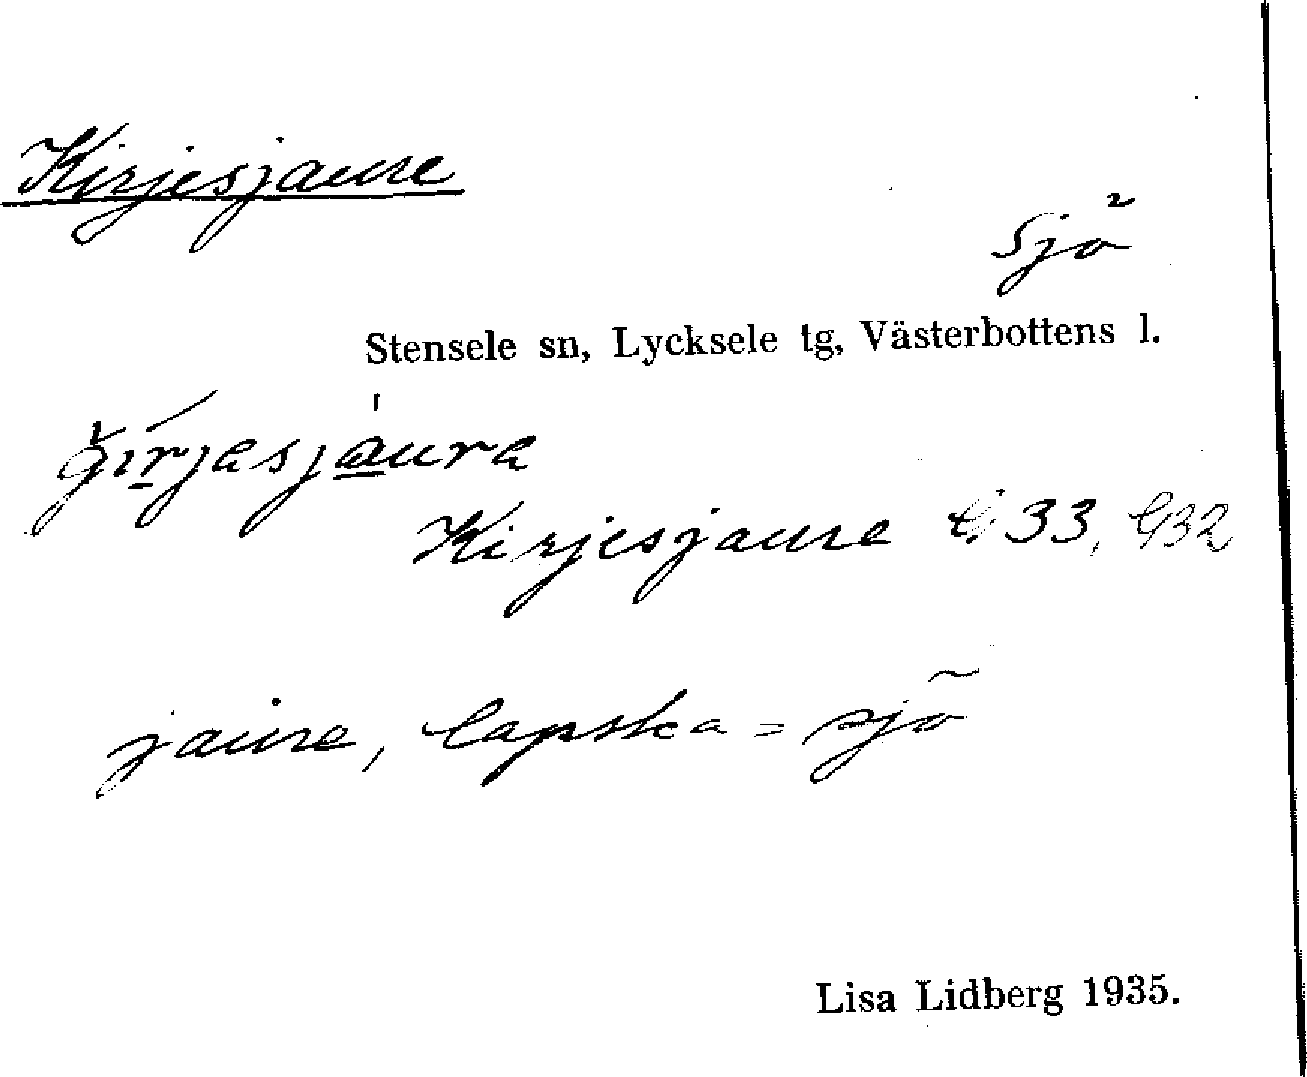 Kirjesjaure
Sjö
Stensele sn, Lycksele tg, Västerbottens l.
girjasjaura
Kirjesjaure G 33, G32
jaure, lapska = sjö
Lisa Lidberg 1935.